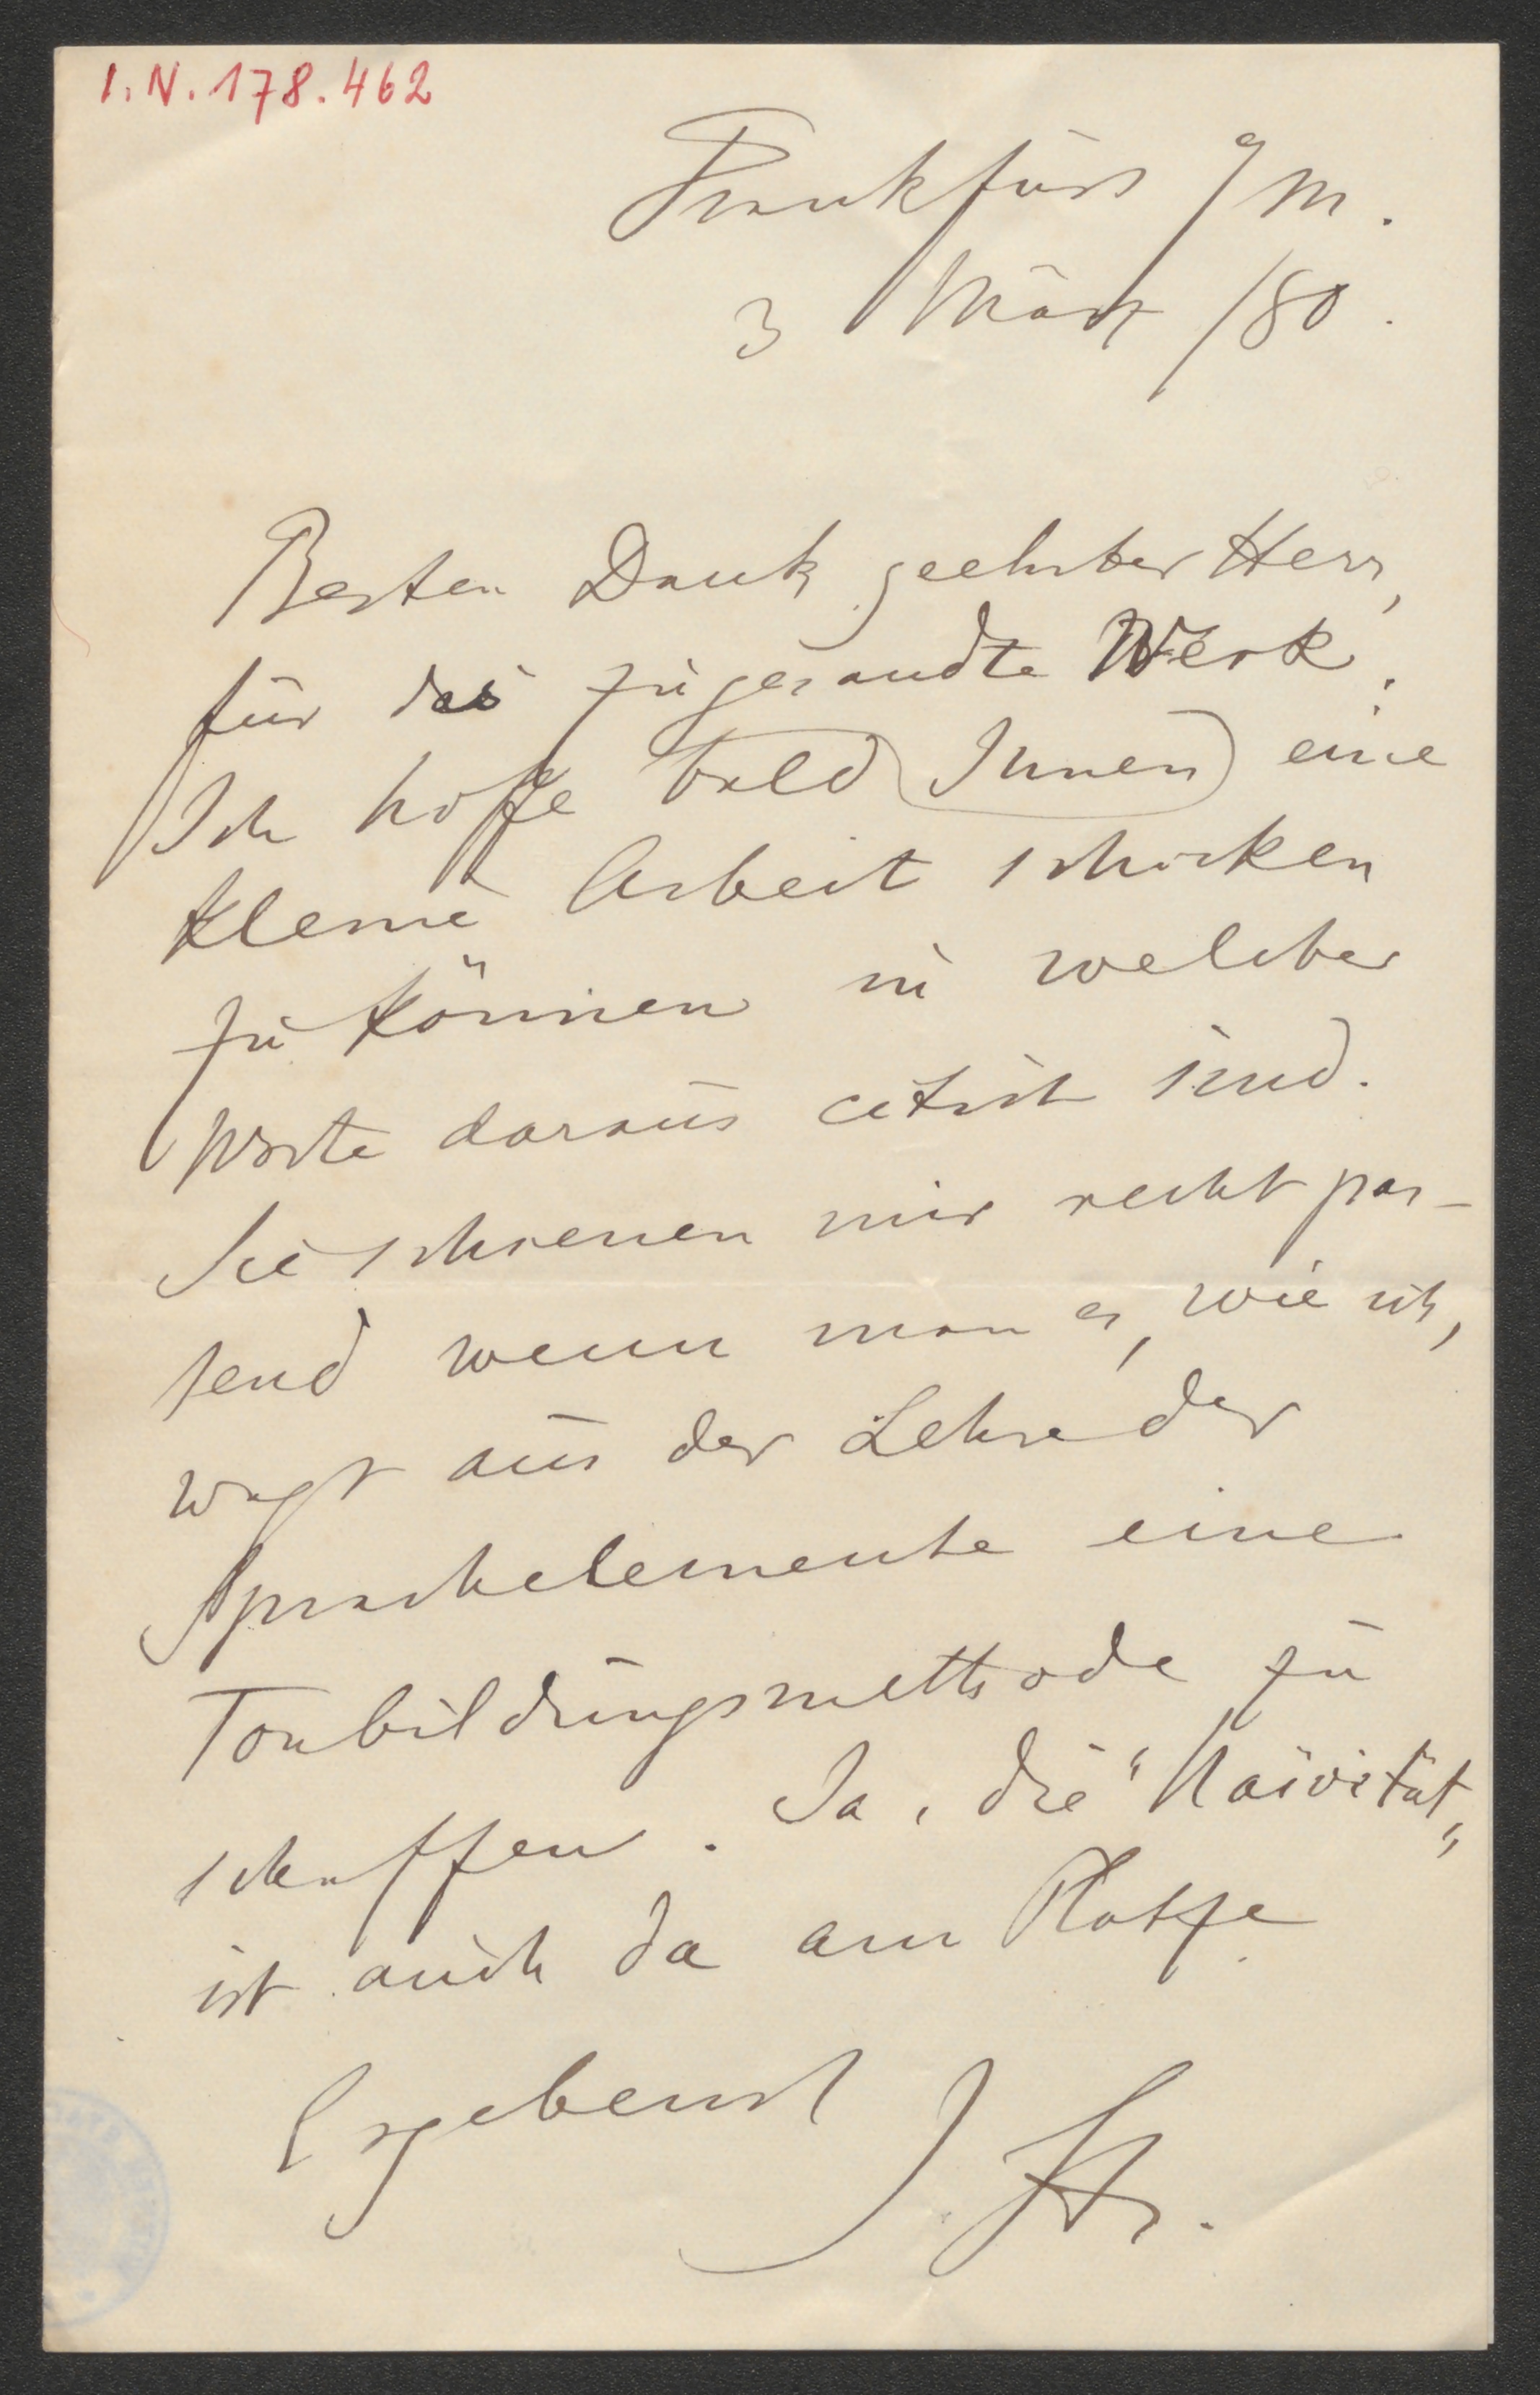 I.N.178.462
Frankfurt a/M.
3 März /80.
Besten Dank geehrter Herr,
für das zugesandte Werk.
Ich hoffe bald Ihnen eine
kleine Arbeit schicken
zu können in welcher
Worte daraus citirt sind.
Sie schienen mir recht pas-
send wenn man es, wie ich,
wagt aus der Lehre der
Sprachelemente eine
Tonbildungsmethode zu
schaffen. Ja, die "Naivität"
ist auch da am Platze
Ergebenst J. St.